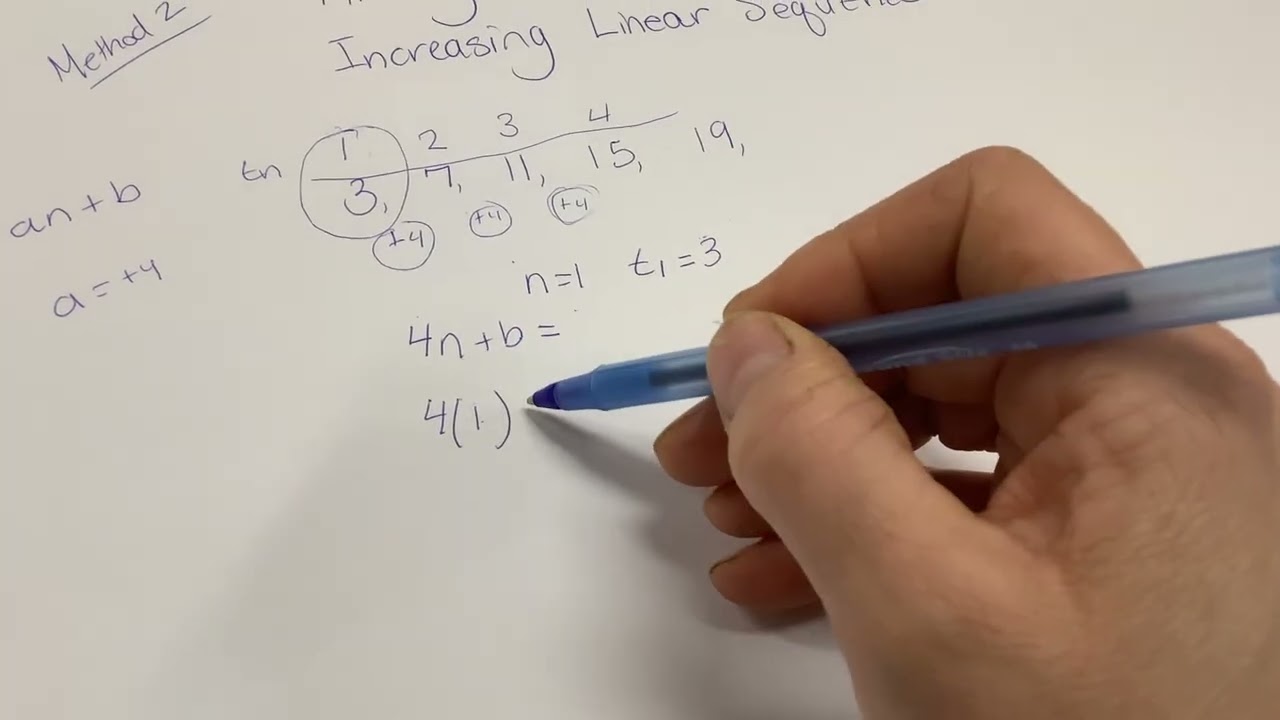 Method 2
Increasing Linear Sequence
1 2 3 4
tn 3, 7, 11, 15, 19,
+4 +4 +4
an + b
a = +4
n=1 t1 = 3
4n + b =
4(1)